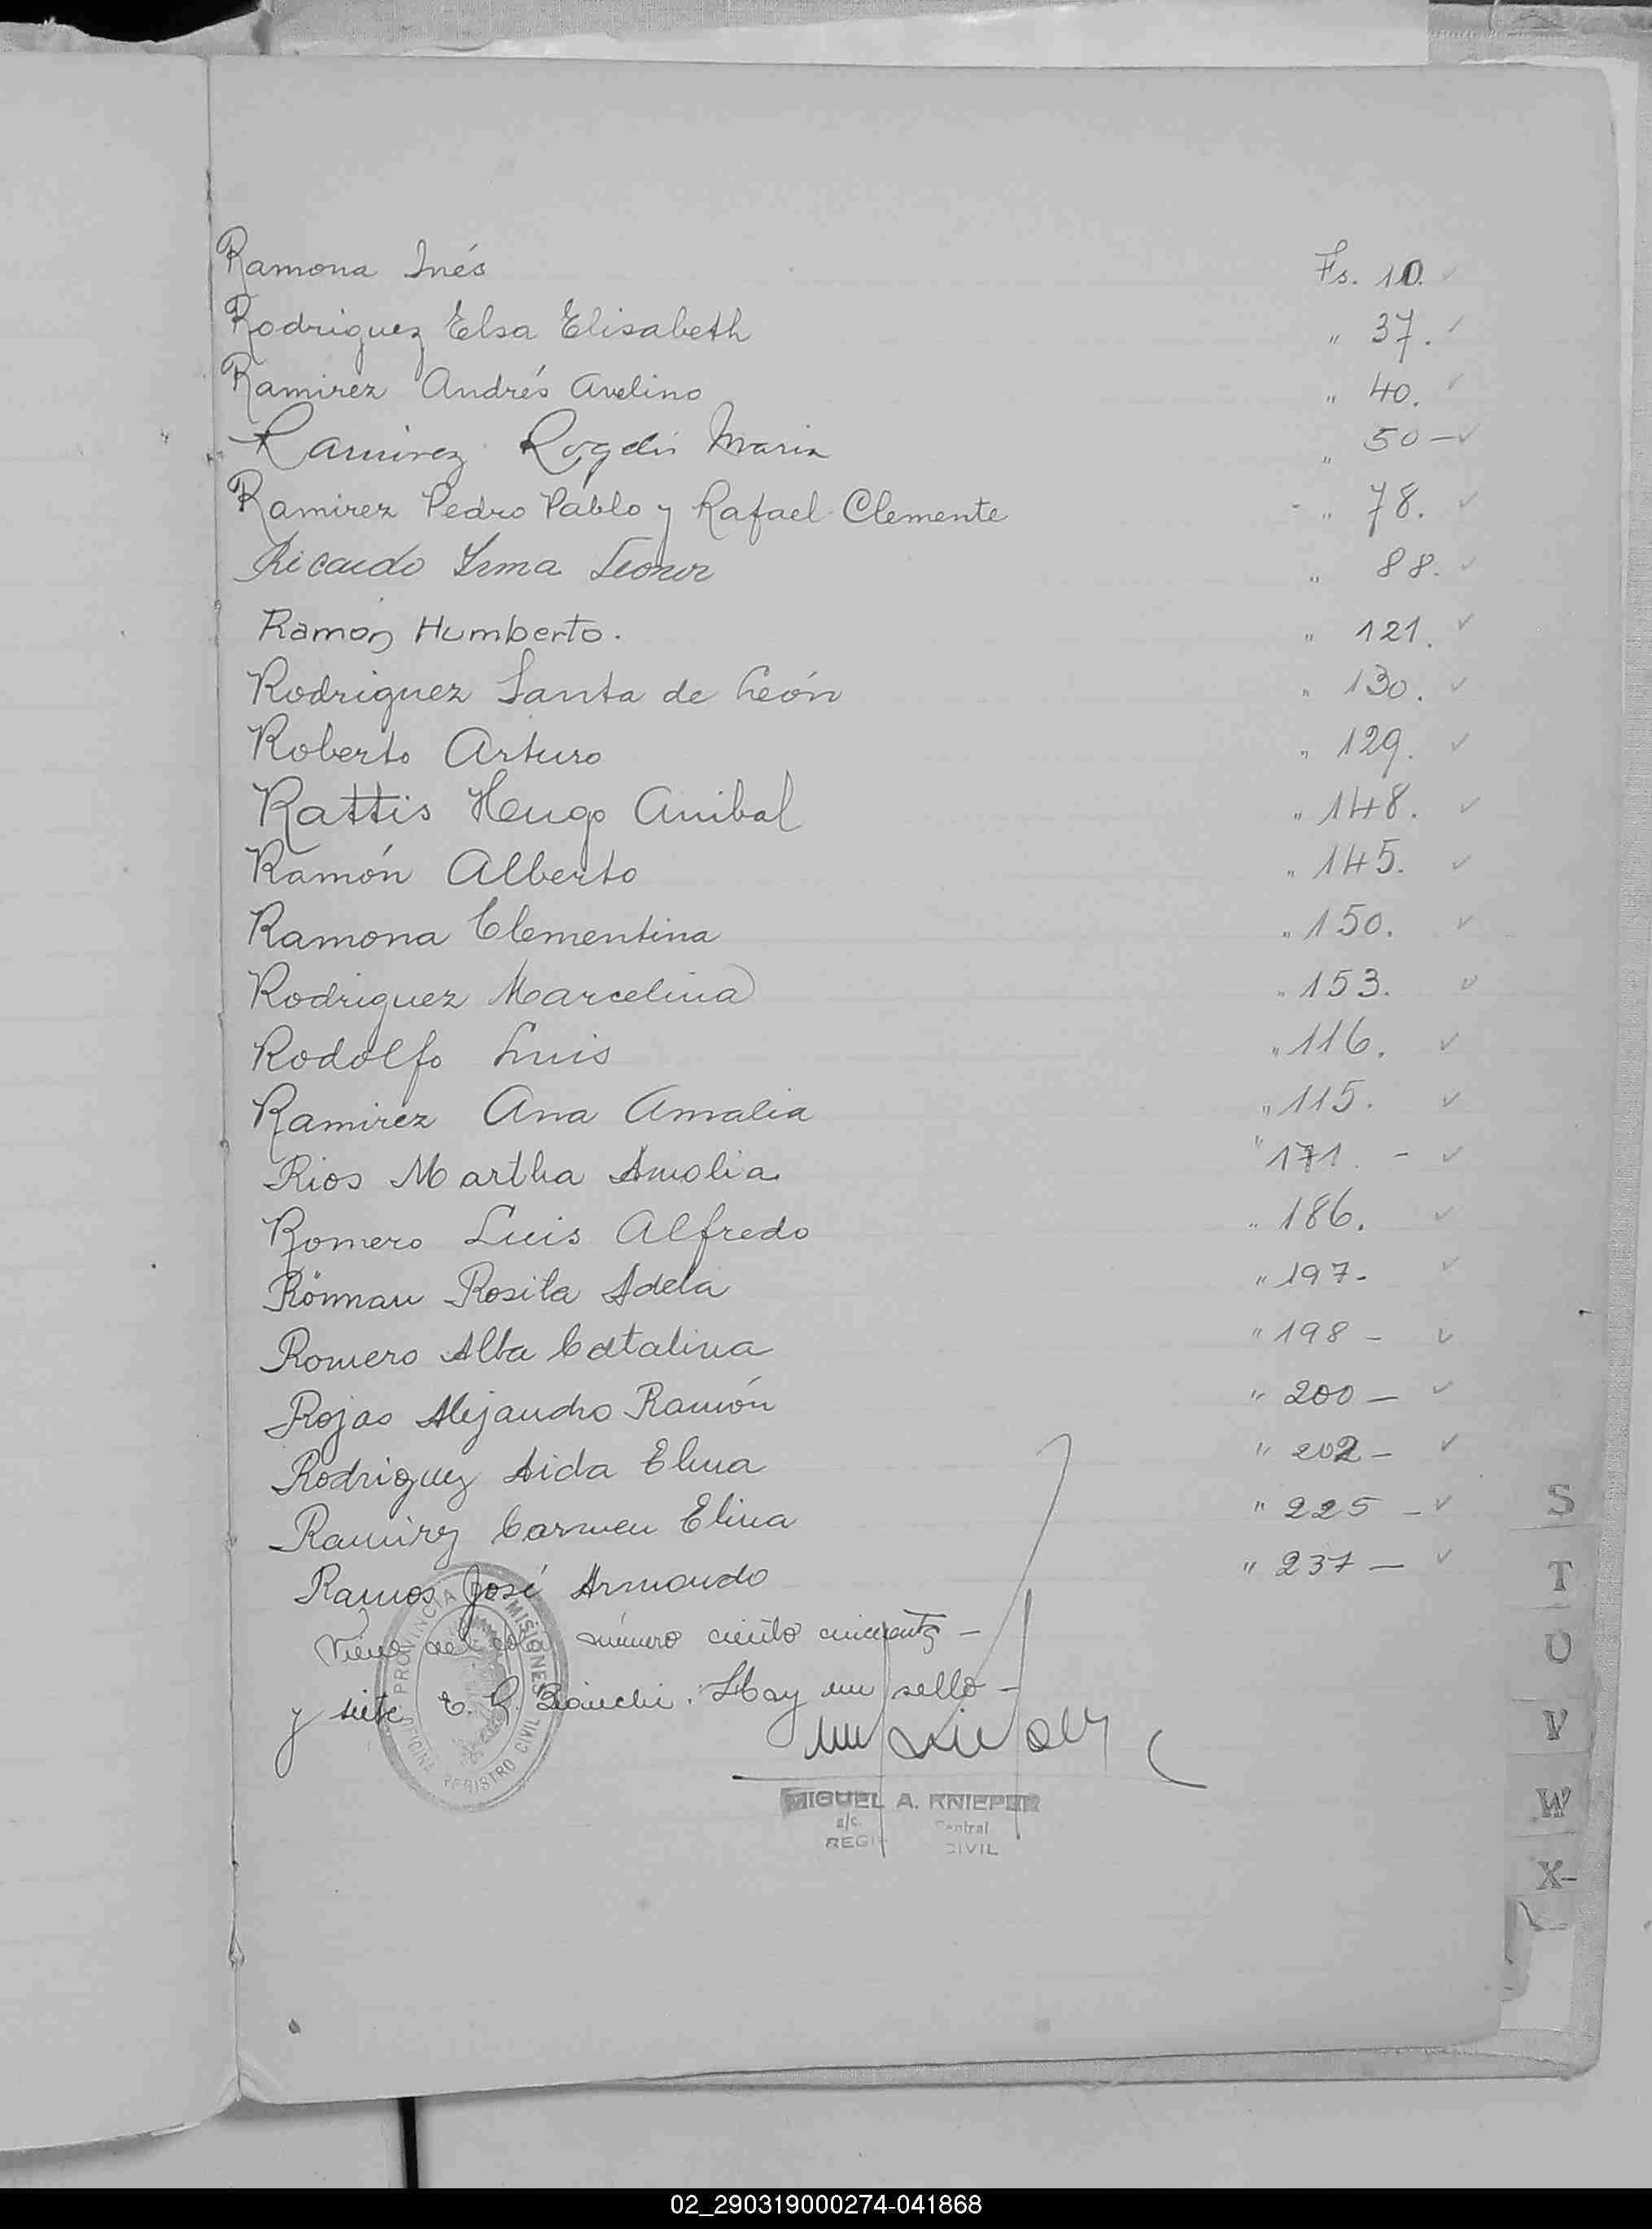 Ramona Inés Fs. 10.
Rodriguez Elsa Elisabeth " 37.
Ramirez Andrés Avelino " 40.
Ramirez Rogelio Maria " 50-
Ramirez Pedro Pablo y Rafael Clemente " 78.
Ricardo Irma Leonor " 88.
Ramón Humberto. " 121.
Rodriguez Santa de León " 130.
Roberto Arturo " 129.
Rattis Hugo Anibal " 148.
Ramón Alberto " 145.
Ramona Clementina " 150.
Rodriguez Marcelina " 153.
Rodolfo Luis " 116.
Ramirez Ana Amalia " 115.
Rios Martha Amolia " 171. -
Romero Luis Alfredo " 186.
Rönnau Rosita Adela " 197-
Romero Alba Catalina " 198-
Rojas Alejandro Ramón " 200-
Rodriguez Aida Elena " 202-
Ramirez Carmen Elina " 225-
Ramos José Armando " 237-
Viene del número ciento cincuenta -
y siete E. R. Bianchi. Hay un sello -
PROVINCIA DE MISIONES
OFICINA REGISTRO CIVIL
MIGUEL A. KNIEPER
a/c. Central
CIVIL
S
T
U
V
W
X-
02_290319000274-041868